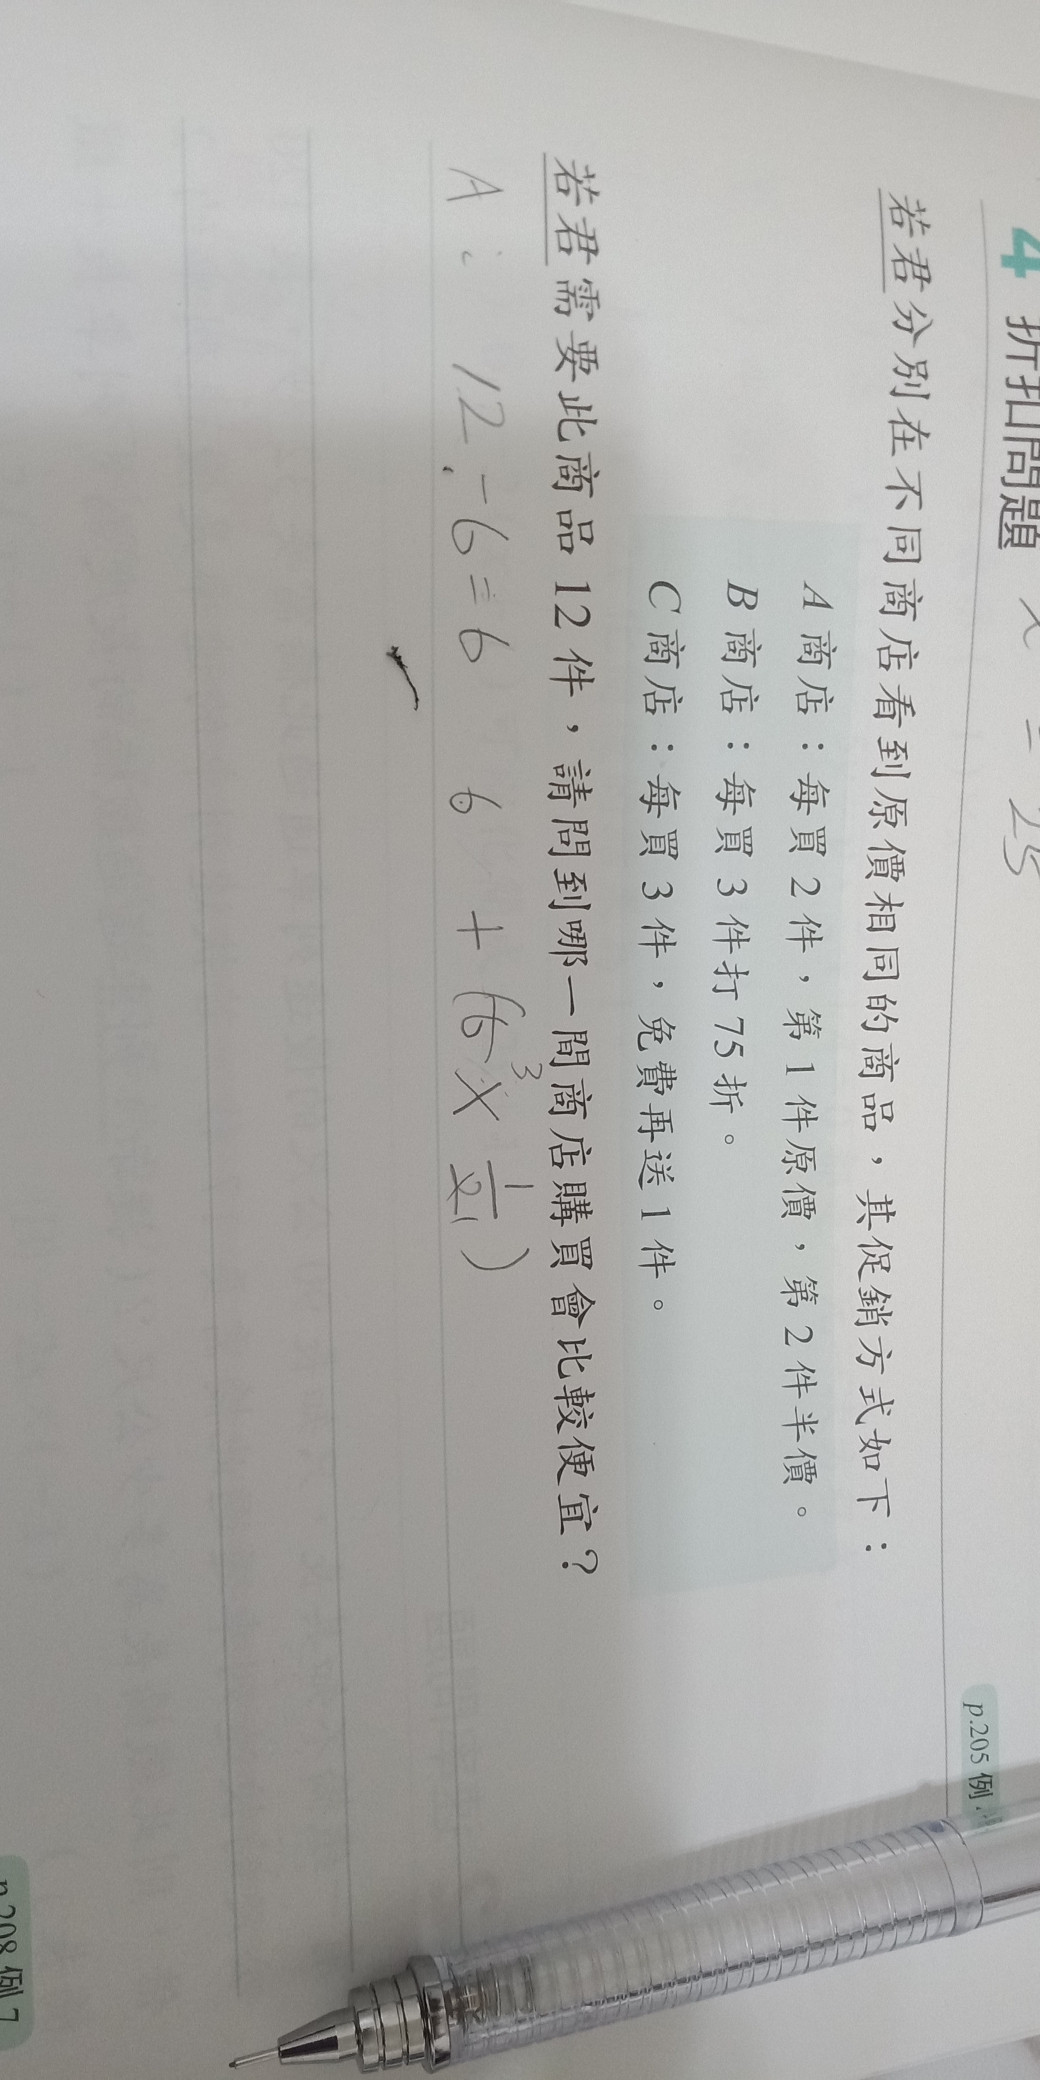 x = 25
4 折扣問題
p.205 例
若君分別在不同商店看到原價相同的商品，其促銷方式如下：
A 商店：每買 2 件，第 1 件原價，第 2 件半價。
B 商店：每買 3 件打 75 折。
C 商店：每買 3 件，免費再送 1 件。
若君需要此商品 12 件，請問到哪一間商店購買會比較便宜？
A: 12-6=6 6 + (6 3 × 1/2 1)
p.208 例 7